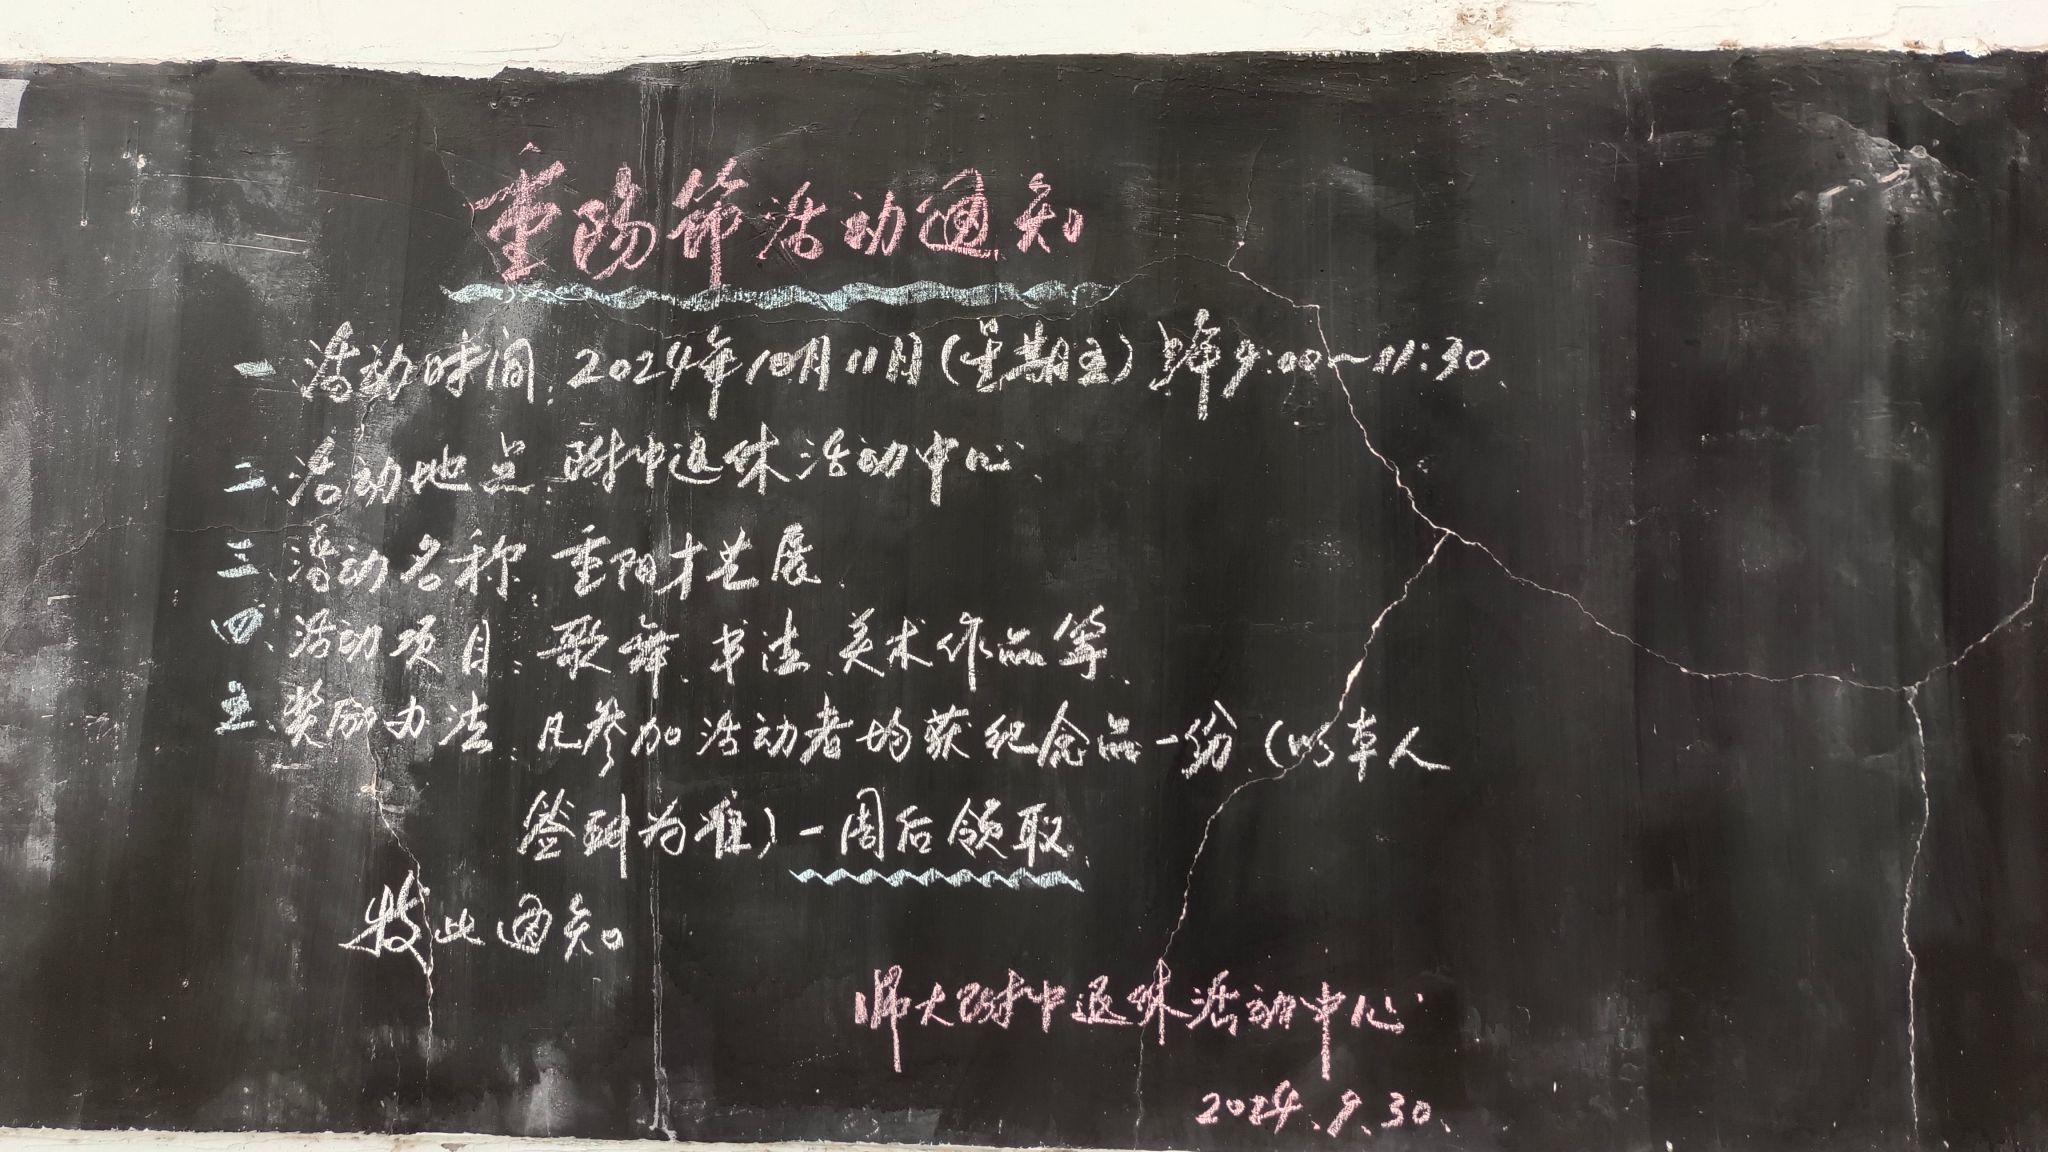 重阳节活动通知
一、活动时间：2024年10月11日（星期五）上午9:00～11:30、
二、活动地点：附中退休活动中心、
三、活动名称：重阳才艺展、
四、活动项目：歌舞、书法、美术作品等、
五、奖励办法、凡参加活动者均获纪念品一份（以本人
签到为准）一周后领取、
特此通知
师大附中退休活动中心
2024、9、30、